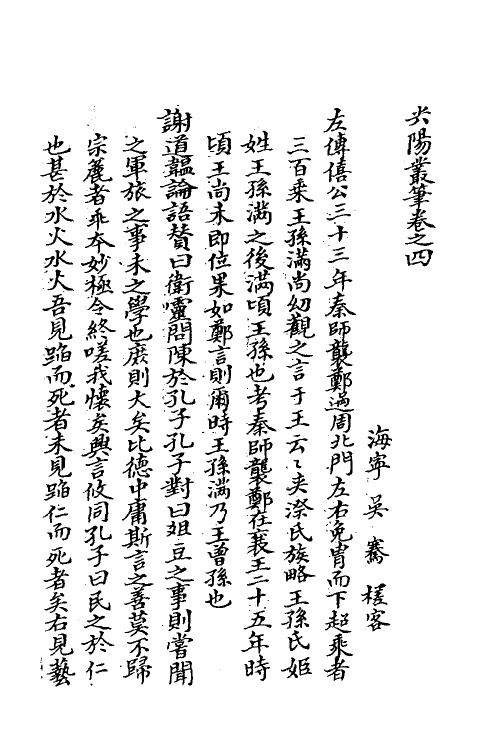 尖陽叢筆卷之四
海寧 吳騫 槎客
左傳僖公三十三年秦師襲鄭過周北門左右免胄而下超乘者
三百乘王孫滿尚幼觀之言于王云云夾漈氏族略王孫氏姬
姓王孫滿之後滿頃王孫也考秦師襲鄭在襄王二十五年時
頃王尚未即位果如鄭言則爾時王孫滿乃王曾孫也
謝道韞論語贊曰衛靈問陳於孔子孔子對曰俎豆之事則嘗聞
之軍旅之事未之學也庶則大矣比德中庸斯言之善莫不歸
宗麄者乖本妙極令終嗟我懷矣興言攸同孔子曰民之於仁
也甚於水火水火吾見蹈而死者未見蹈仁而死者矣右見藝